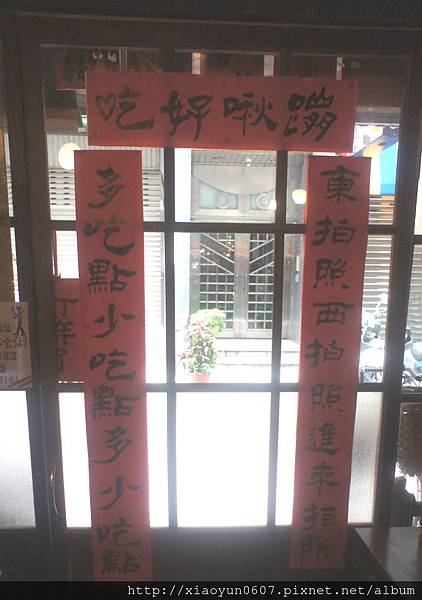 啾好吃
東拍照西拍照進來拍照
多吃點少吃點多少吃點
http://xiaoyun0607.pixnet.net/album